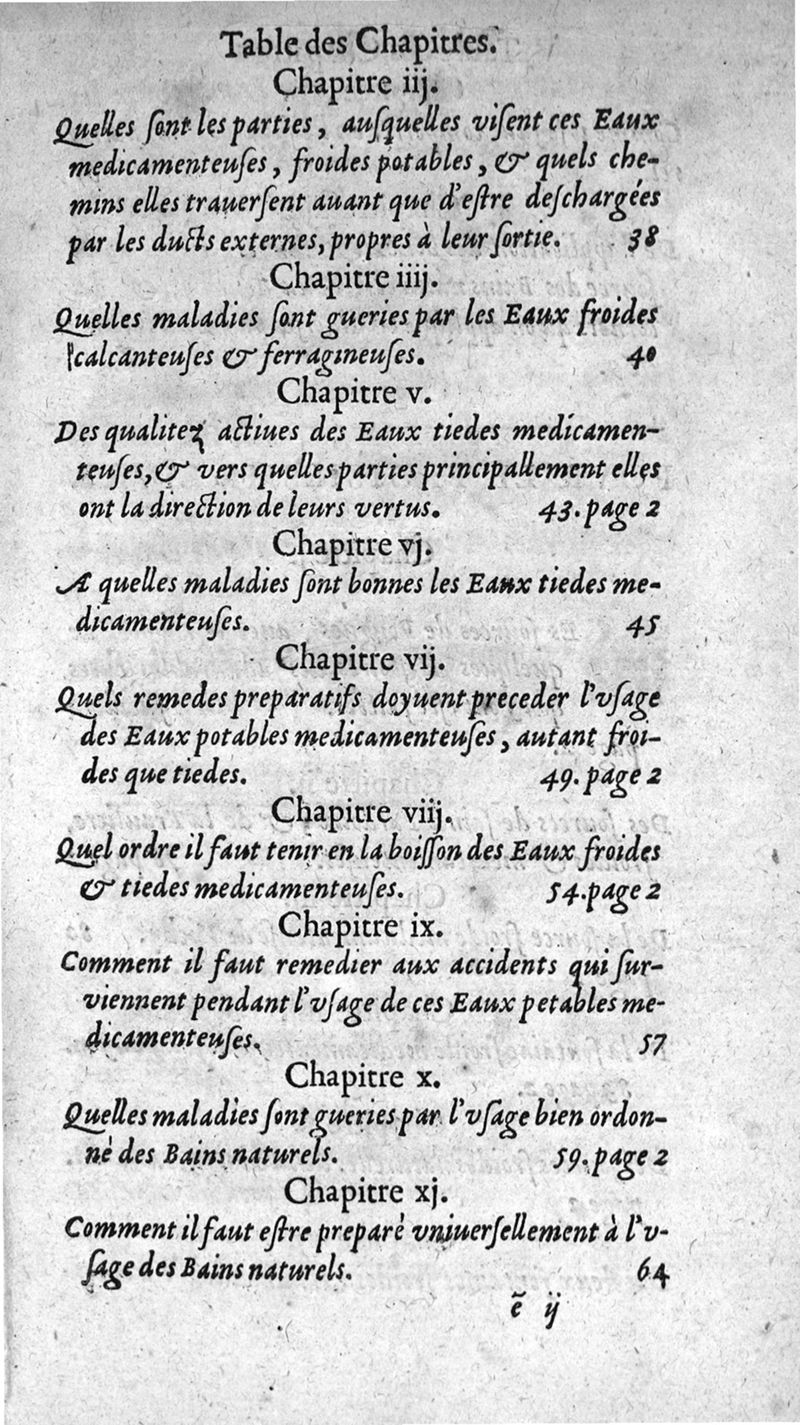 Table des Chapitres.
Chapitre iij.
Quelles ſont les parties, auſquelles viſent ces Eaux
medicamenteuſes, froides potables, & quels che-
mins elles trauerſent auant que d'eſtre deſchargées
par les ducts externes, propres à leur ſortie. 38
Chapitre iiij.
Quelles maladies ſont gueries par les Eaux froides
calcanteuſes & ferragineuſes. 40
Chapitre v.
Des qualitez actiues des Eaux tiedes medicamen-
teuſes, & vers quelles parties principallement elles
ont la direction de leurs vertus. 43. page 2
Chapitre vj.
A quelles maladies ſont bonnes les Eaux tiedes me-
dicamenteuſes. 45
Chapitre vij.
Quels remedes preparatifs doyuent preceder l'vſage
des Eaux potables medicamenteuſes, autant froi-
des que tiedes. 49. page 2
Chapitre viij.
Quel ordre il faut tenir en la boiſſon des Eaux froides
& tiedes medicamenteuſes. 54. page 2
Chapitre ix.
Comment il faut remedier aux accidents qui ſur-
viennent pendant l'vſage de ces Eaux petables me-
dicamenteuſes. 57
Chapitre x.
Quelles maladies ſont gueries par l'vſage bien ordon-
nè des Bains naturels. 59. page 2
Chapitre xj.
Comment il faut eſtre preparè vniuerſellement à l'v-
ſage des Bains naturels. 64
ẽ ij